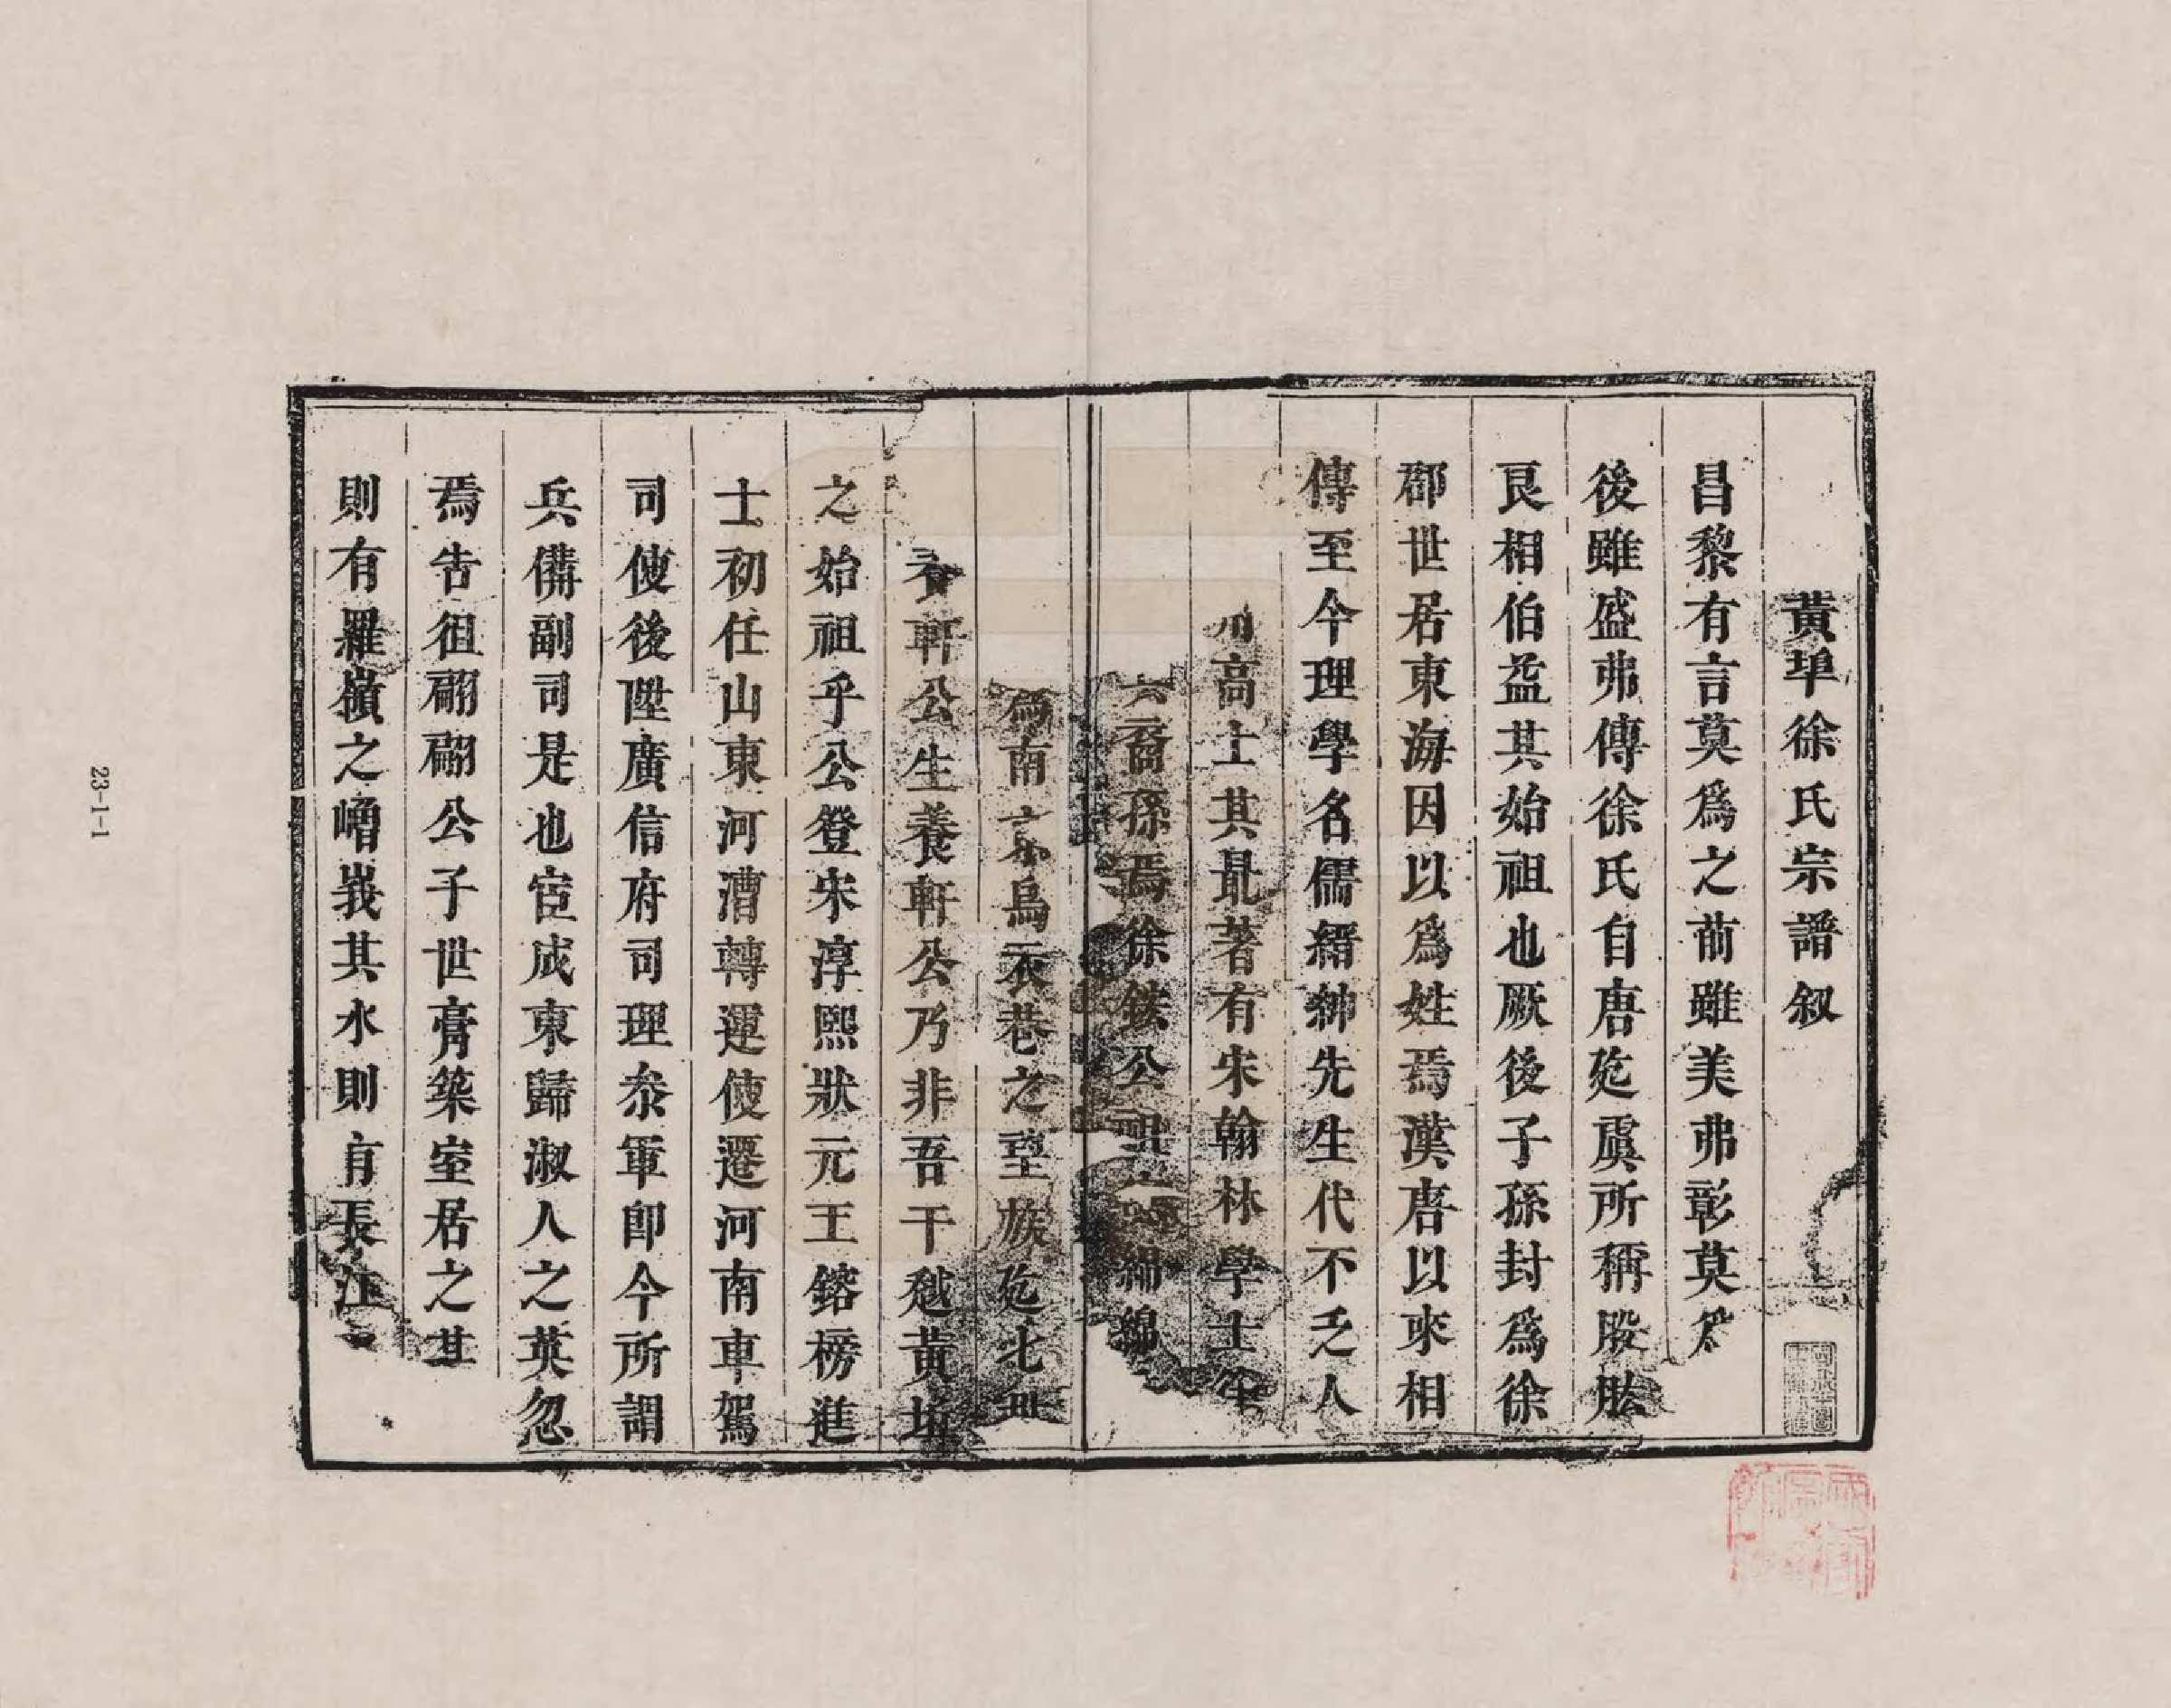 黃埠徐氏宗譜叙
昌黎有言莫爲之前雖美弗彰莫爲
後雖盛弗傳徐氏自唐迄虞所稱股肱
良相伯益其始祖也厥後子孫封爲徐
郡世居東海因以爲姓焉漢唐以來相
傳至今理學名儒縉紳先生代不乏人
高士其最著有宋翰林學士
裔孫焉徐鉉公祖 綿綿
爲南京烏衣巷之望族迄七世
軒公生養軒公乃非吾干越黃埠
之始祖乎公登宋淳熙狀元王鎔榜進
士初任山東河漕轉運使遷河南車駕
司使後陞廣信府司理叅軍即今所謂
兵備副司是也宦成東歸淑人之英忽
焉告徂翮翮公子世膏築室居之其
則有羅嶺之嶒峩其水則有長江
23-1-1